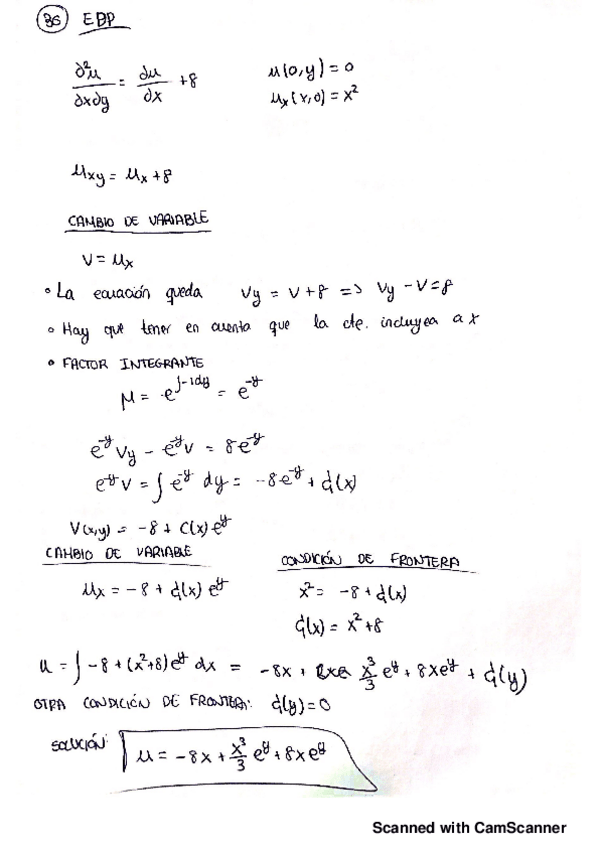 36 EDP
∂²u/∂x∂y = du/∂x + 8    u(0,y) = 0
u_x(x,0) = x²
u_xy = u_x + 8
CAMBIO DE VARIABLE
V = u_x
• La ecuación queda V_y = V + 8 => V_y - V = 8
• Hay que tener en cuenta que la cte. incluyea a x
• FACTOR INTEGRANTE
μ = e^∫-1dy = e^-y
e^-y V_y - e^-y V = 8e^-y
e^-y V = ∫ e^-y dy = -8e^-y + C(x)
V(x,y) = -8 + C(x) e^y
CAMBIO DE VARIABLE    CONDICIÓN DE FRONTERA
u_x = -8 + C(x) e^y    x² = -8 + C(x)
C(x) = x² + 8
u = ∫ -8 + (x²+8)e^y dx = -8x + x³/3 e^y + 8xe^y + C(y)
OTRA CONDICIÓN DE FRONTERA: C(y) = 0
SOLUCIÓN: u = -8x + x³/3 e^y + 8xe^y
Scanned with CamScanner